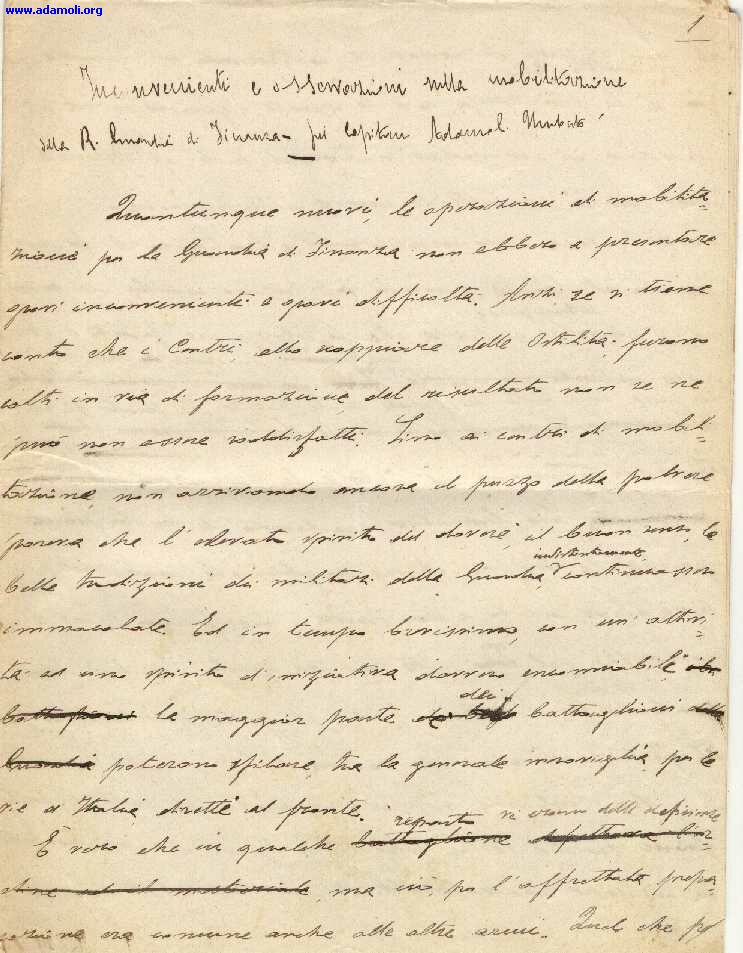 www.adamoli.org
1
Inconvenienti e osservazioni sulla mobilitazione
della R. Guardia di Finanza - pel Capitano Adamoli Umberto
Quantunque nuovi, le operazioni di mobilita-
zione per la Guardia di Finanza non ebbero a presentare
gravi inconvenienti e gravi difficoltà. Anzi se si tiene
conto che i Centri, allo scoppiare delle Ostilità, furono
colti in via di formazione, del risultato non se ne
può non essere soddisfatti. Sino ai centri di mobili-
tazione, non arrivando ancora il puzzo della polvere
pareva che l'elevato spirito del dovere, il buon senso, le
belle tradizioni dei militari della Guardia, continuassero
immacolate. Ed in tempo brevissimo, con un'attivi-
tà ed uno spirito d'iniziativa davvero encomiabile
battaglioni la maggior parte dei battaglioni della
Guardia poterono sfilare, tra la generale meraviglia, per le
vie d'Italia diretti al fronte.
È vero che in qualche battaglione reparto vi erano delle deficienze
ed il materiale, ma ciò, per l'affrettata prepa-
razione era comune anche alle altre armi. Quel che più